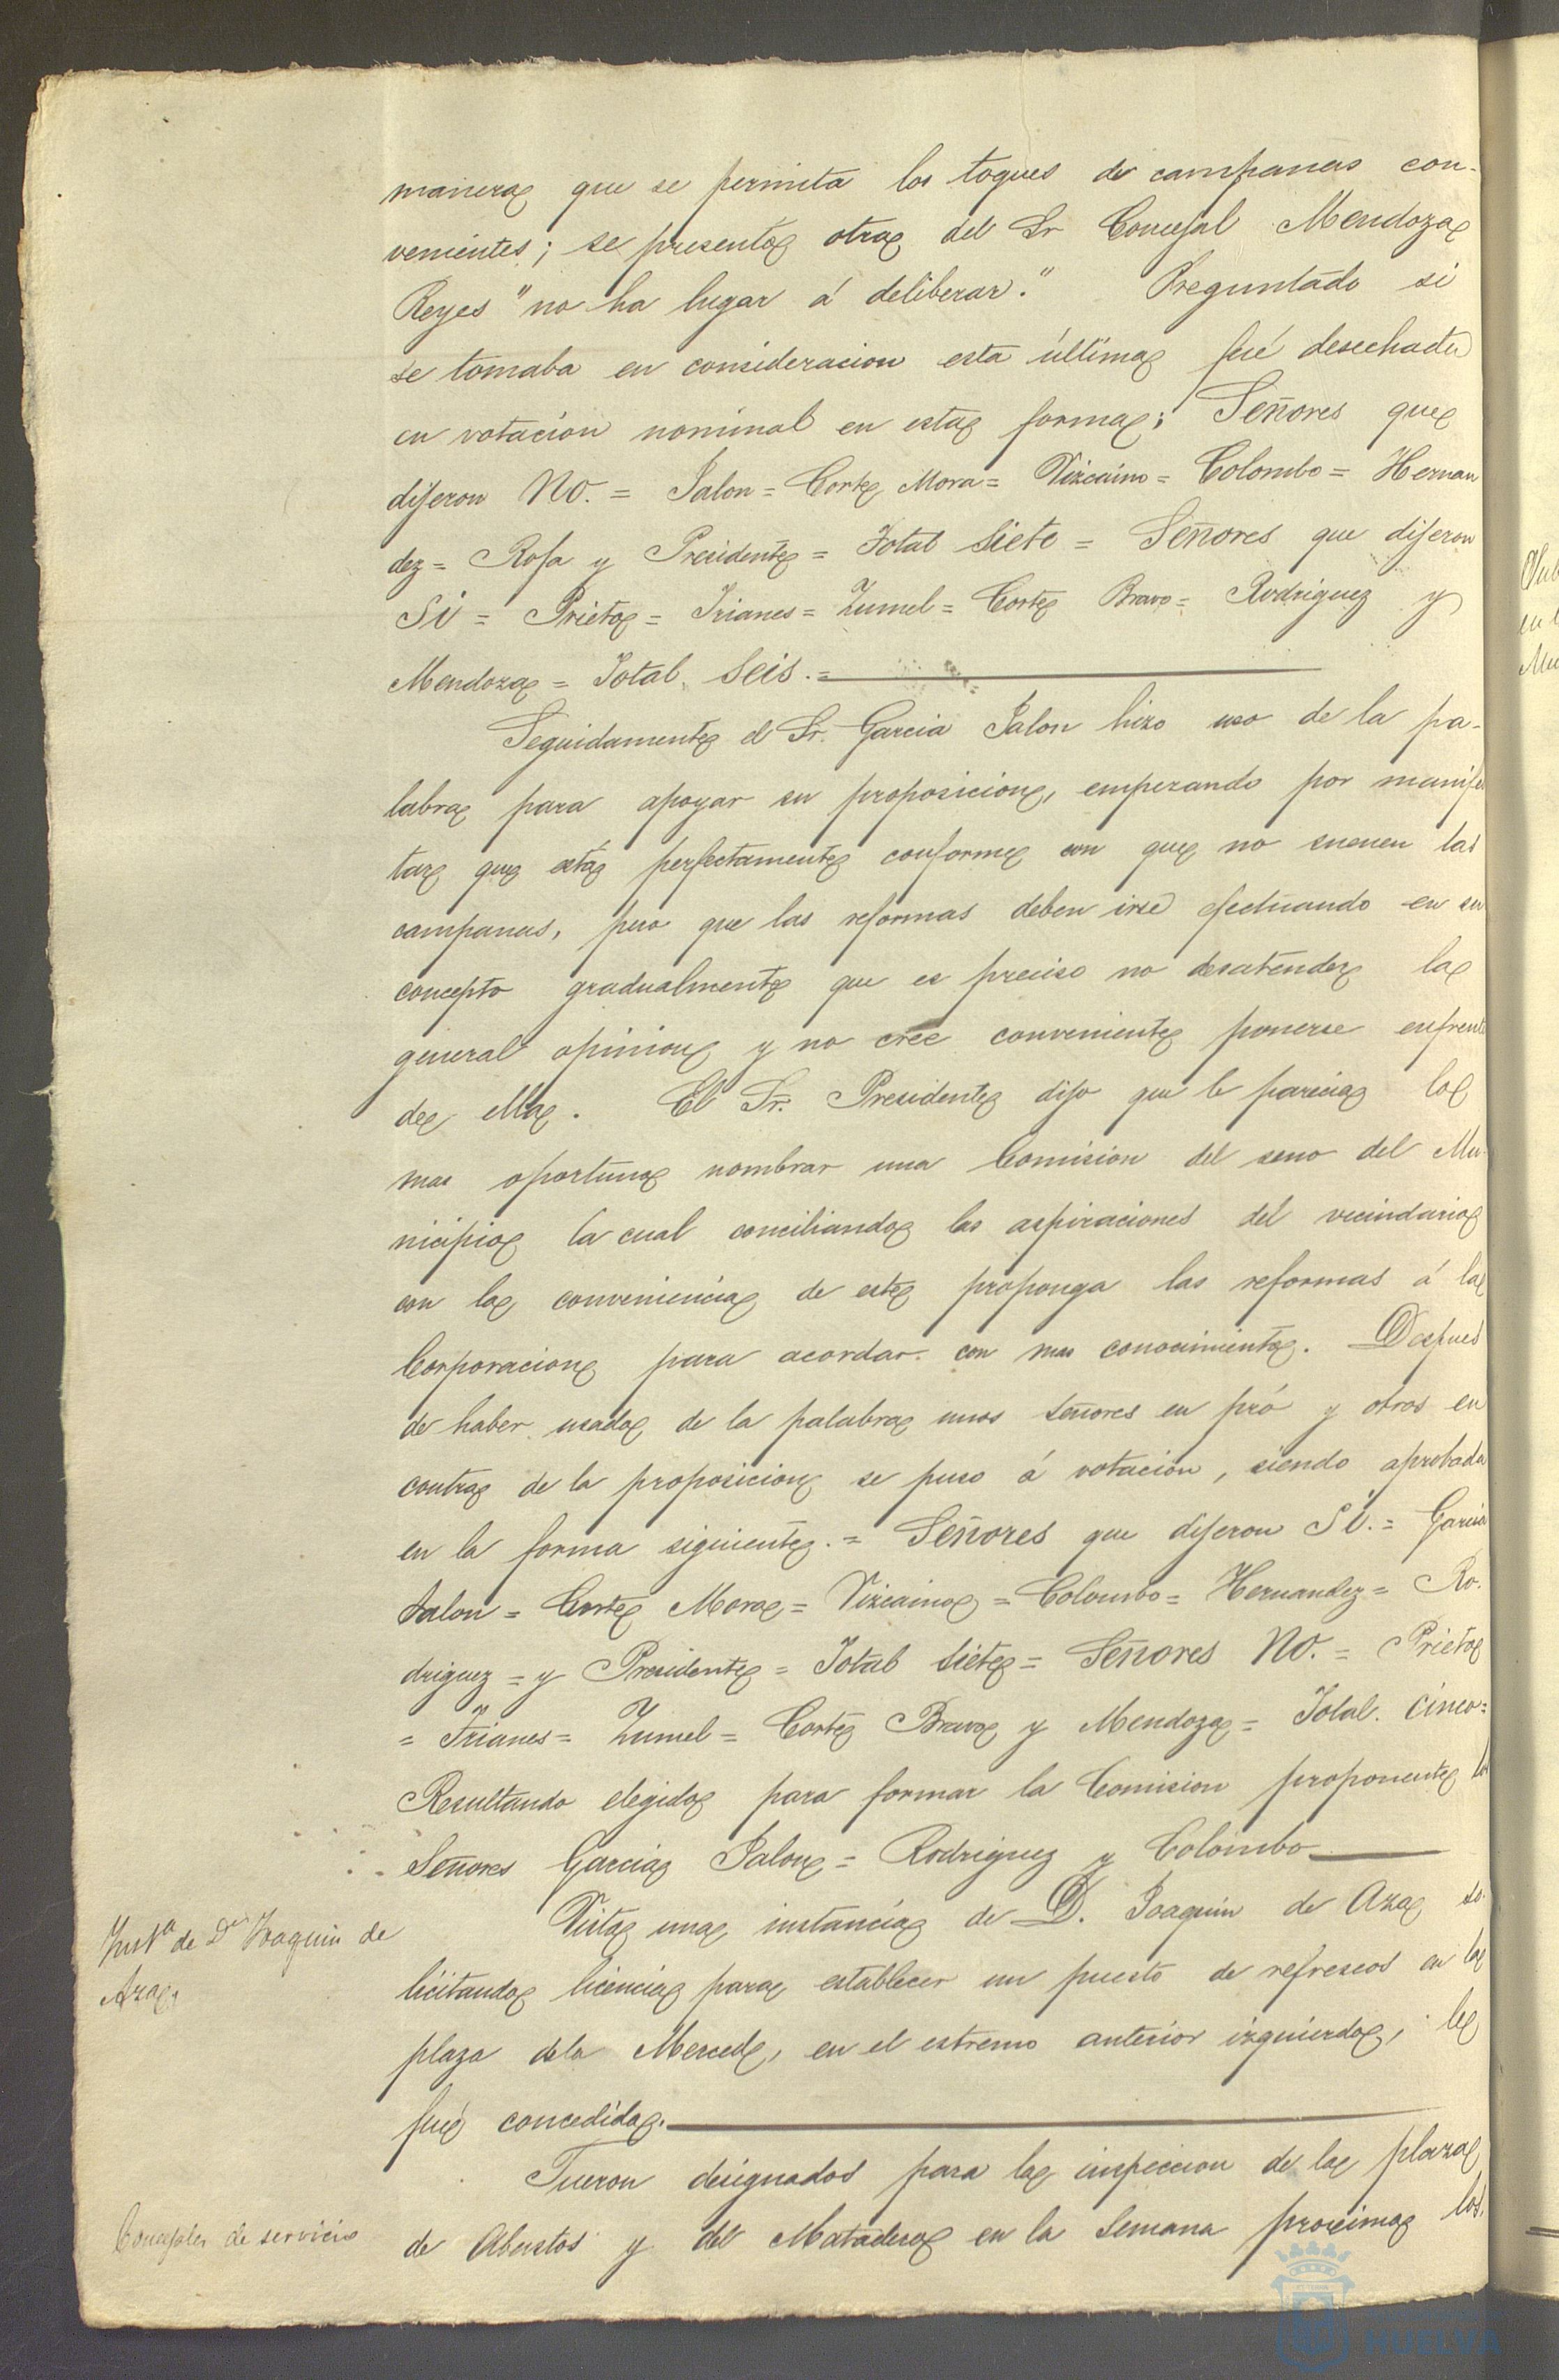 manera que se permita los toques de campanas con-
venientes; se presentó otra del Sr Concejal Mendoza
Reyes "no ha lugar á deliberar." Preguntado si
se tomaba en consideracion esta última fué desechada
en votación nominal en esta forma; Señores que
dijeron No. = Jalon = Corte Mora = Vizcaino = Colombo = Hernan
dez = Rofa y Presidente = Total Siete = Señores que dijeron
Sí = Prieto = Trianes = Zumel = Corte Bravo = Rodriguez y
Mendoza = Total Seis. =
Seguidamente el Sr. Garcia Jalon hizo uso de la pa-
labra para apoyar su proposicion, empezando por manifes
tar que está perfectamente conforme con que no suenen las
campanas, pero que las reformas deben irse efectuando en su
concepto gradualmente que es preciso no desatender la
general opinion y no cree conveniente ponerse enfrente
de ella. El Sr. Presidente dijo que le parecia lo
mas oportuno nombrar una Comision del seno del Mu-
nicipio la cual conciliando las aspiraciones del vecindario
con la conveniencia de este proponga las reformas á la
Corporacion para acordar con mas conocimiento. Despues
de haber usado de la palabra unos señores en pró y otros en
contra de la proposicion se puso á votacion, siendo aprobada
en la forma siguiente. = Señores que dijeron Sí. = Garcia
Jalon = Corte Mora = Vizcaino = Colombo = Hernandez = Ro-
driguez = y Presidente = Total Siete = Señores No. = Prieto
= Trianes = Zumel = Corte Bravo y Mendoza = Total. Cinco =
Resultando elegido para formar la Comision proponente los
Señores Garcia Jalon = Rodriguez y Colombo
Inst.ª de Dn Joaquin de
Aza,
Vista una instancia de D. Joaquin de Aza so-
licitando licencia para establecer un puesto de refrescos en la
plaza dela Merced, en el estremo anterior izquierdo, le
fué concedida.
Concejales de servicio
Fueron designados para la inspeccion de la plaza
de Abastos y del Matadero en la Semana proxima los
HUELVA